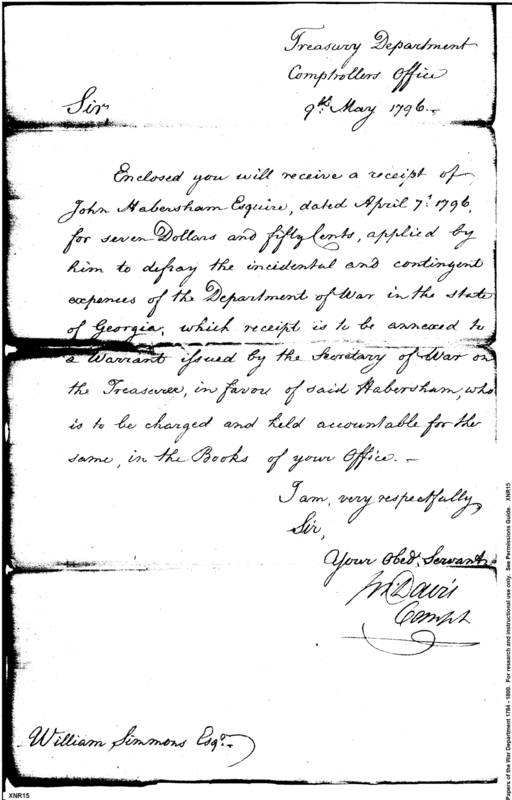 Treasury Department
Comptrollers Office
9th May 1796.-
Sir,
Enclosed you will receive a receipt of
John Habersham Esquire, dated April 7th 1796,
for seven Dollars and fifty Cents, applied by
him to defray the incidental and contingent
expences of the Department of War in the state
of Georgia; which receipt is to be annexed to
a Warrant issued by the Secretary of War on
the Treasurer, in favou of said Habersham, who
is to be charged and held accountable for the
same, in the Books of your Office.-
I am, very respectfully
Sir,
Your Obedt. Servant
Jn. Davis
Compt
William Simmons Esqr.-
XNR15
Papers of the War Department 1784 - 1800. For research and instructional use only. See Permissions Guide. XNR15